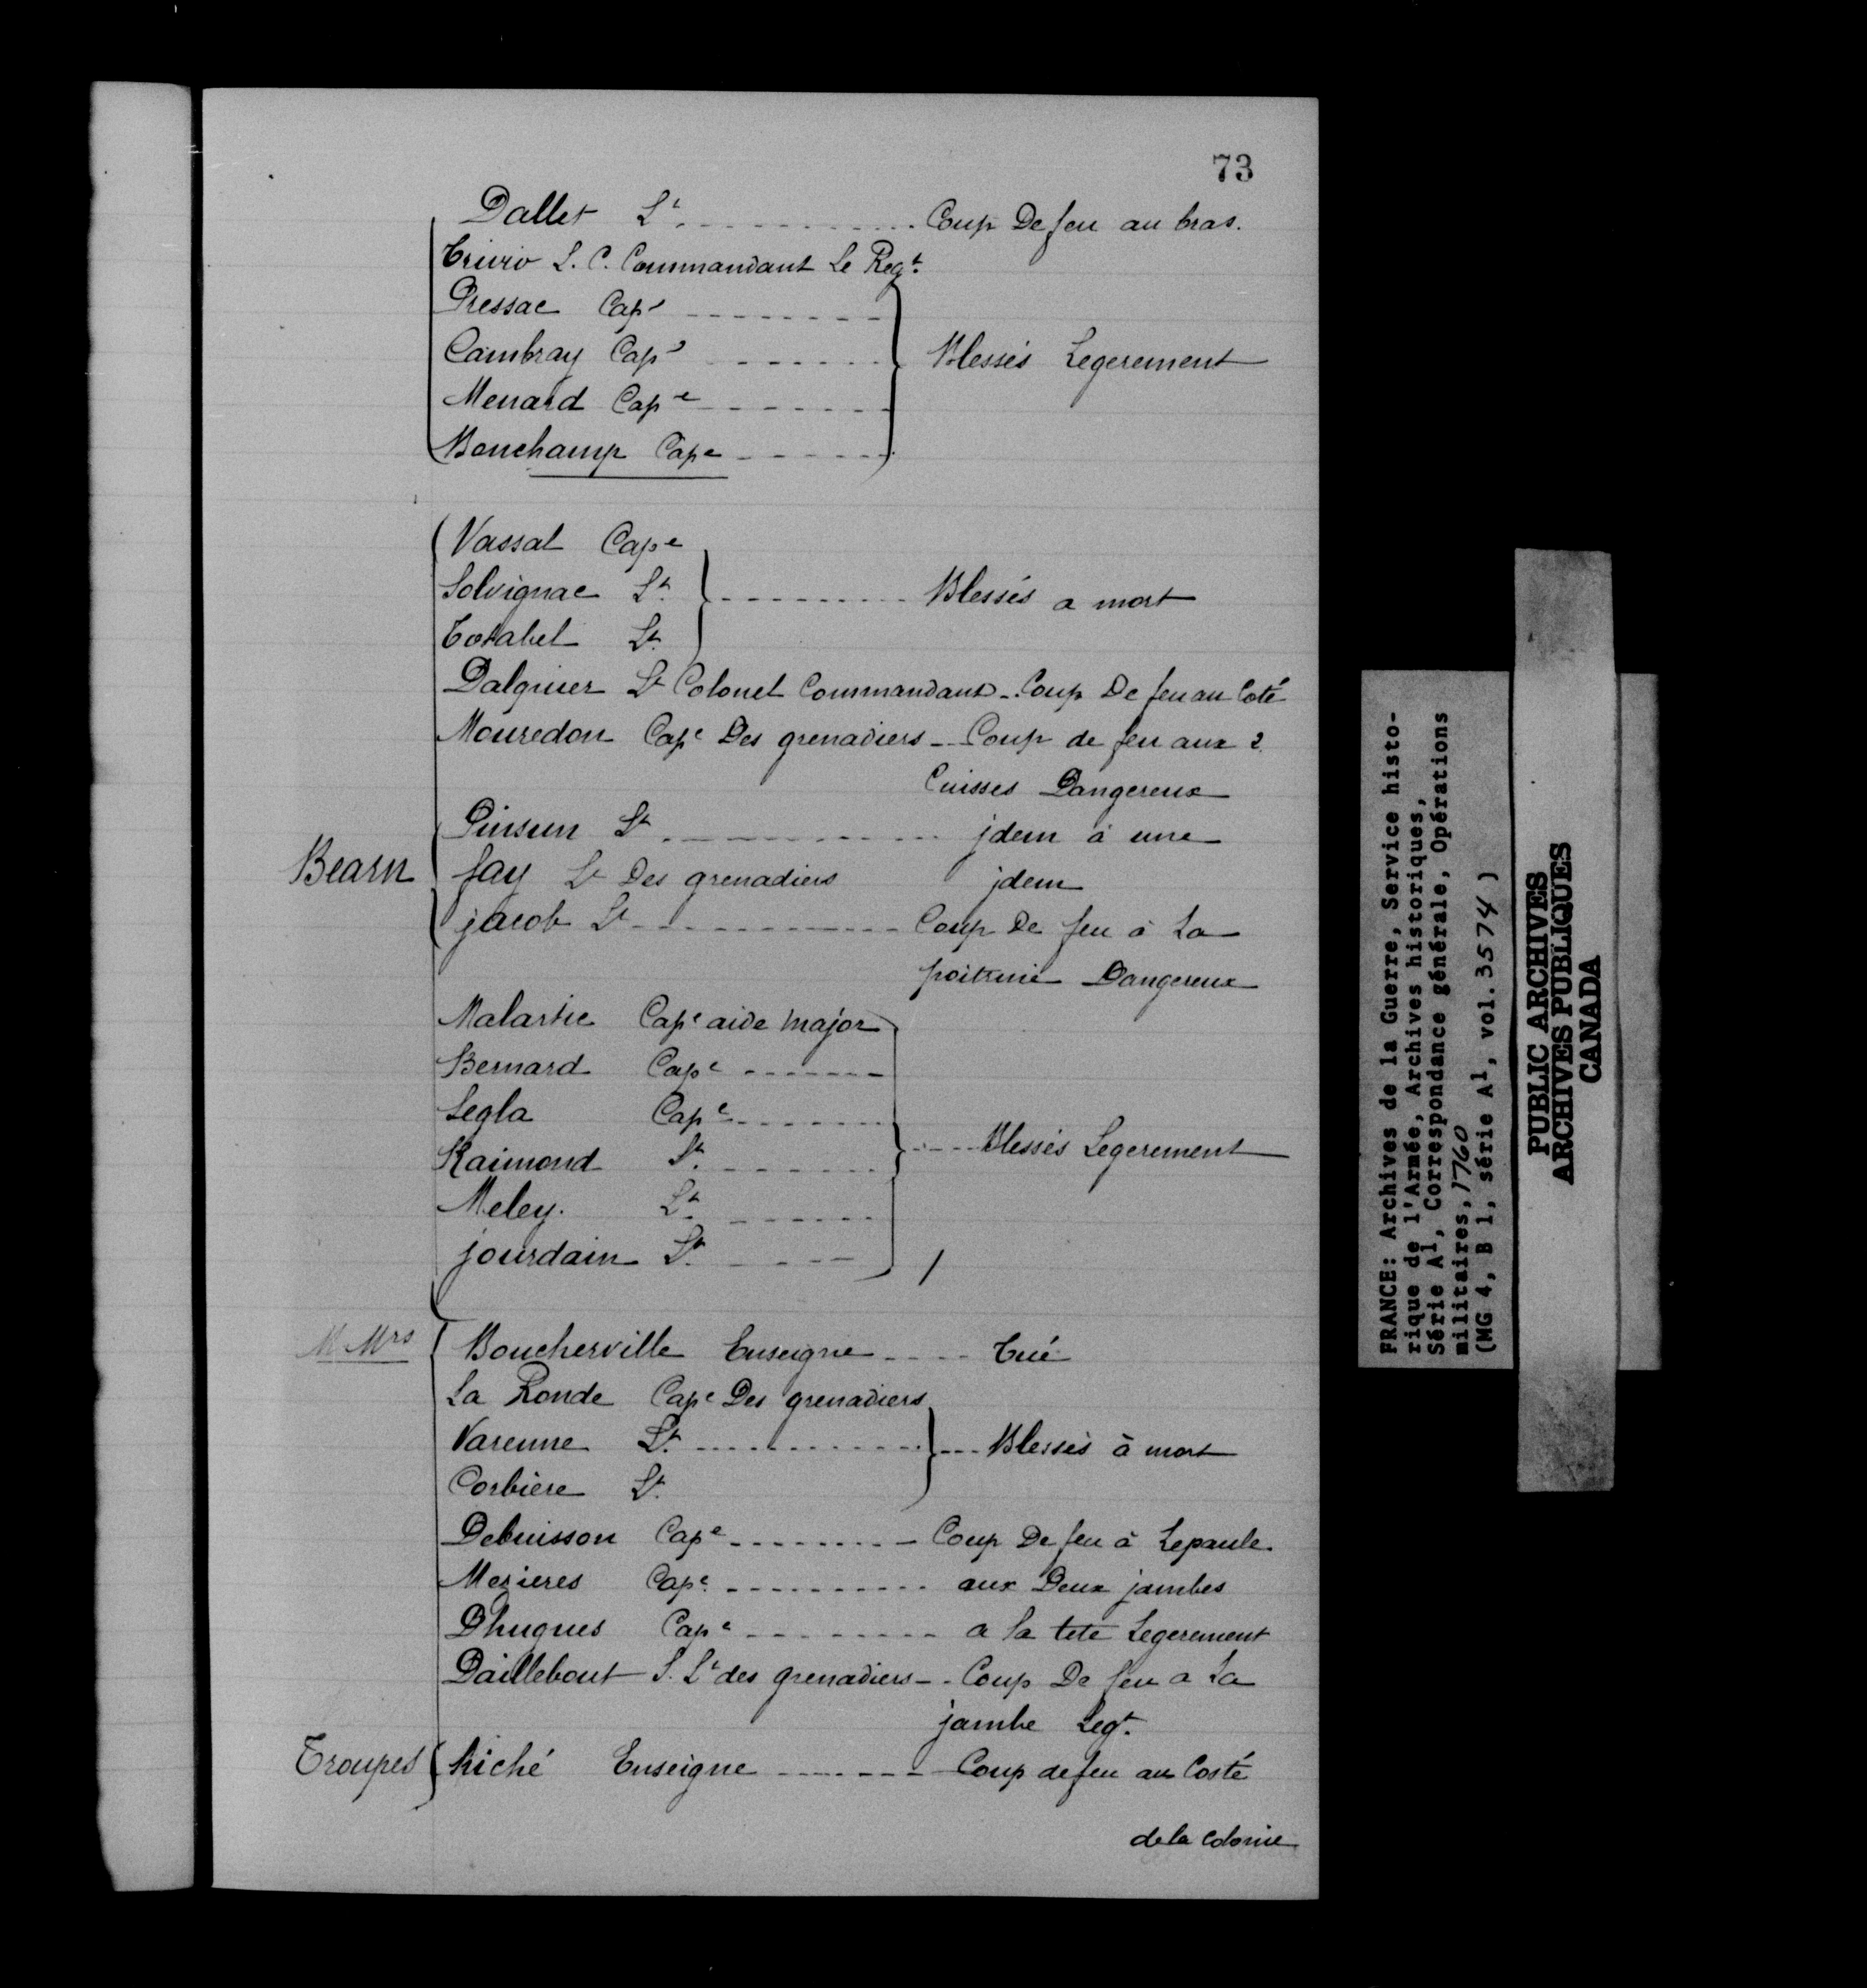 73
Dallet Lt. Coup De feu au bras.
Trivio L. C. Commandant Le Regt.
Pressac Cape
Cambray Cape
Menard Cape
Bonchamp Cape
Blessés Legerement
Vassal Cape
Solvignac Lt.
Totabel Lt.
Blessés a mort
Dalquier Lt Colonel Commandant - Coup De feu au Coté
Mouredon Cape Des grenadiers - Coup de feu aux 2
Cuisses Dangereux
Pinsun Lt jdem à une
Bearn
fay Lt Des grenadiers jdem
jacob Lt Coup De feu à La
poitrine Dangereux
Malartic Cape aide major
Bernard Cape
Segla Cape
Raimond Lt.
Meley. Lt.
jourdain Lt.
Blessés Legerement
M Mrs
Boucherville Enseigne Tué
La Ronde Cape Des grenadiers
Varenne Lt.
Corbiere Lt.
Blessés à mort
Debuisson Cape Coup De feu à Lepaule.
Mezieres Cape. aux Deux jambes
Dhugues Cape a la tete Legerement
Daillebout S. Lt des grenadiers - Coup De feu a La
jambe Legt.
Troupes
hiché Enseigne Coup de feu au Costé
de la Colonie
FRANCE: Archives de la Guerre, Service histo-
rique de l'Armée, Archives historiques,
Série A1, Correspondance générale, Opérations
militaires, 1760
(MG 4, B 1, série A1, vol. 3574)
PUBLIC ARCHIVES
ARCHIVES PUBLIQUES
CANADA